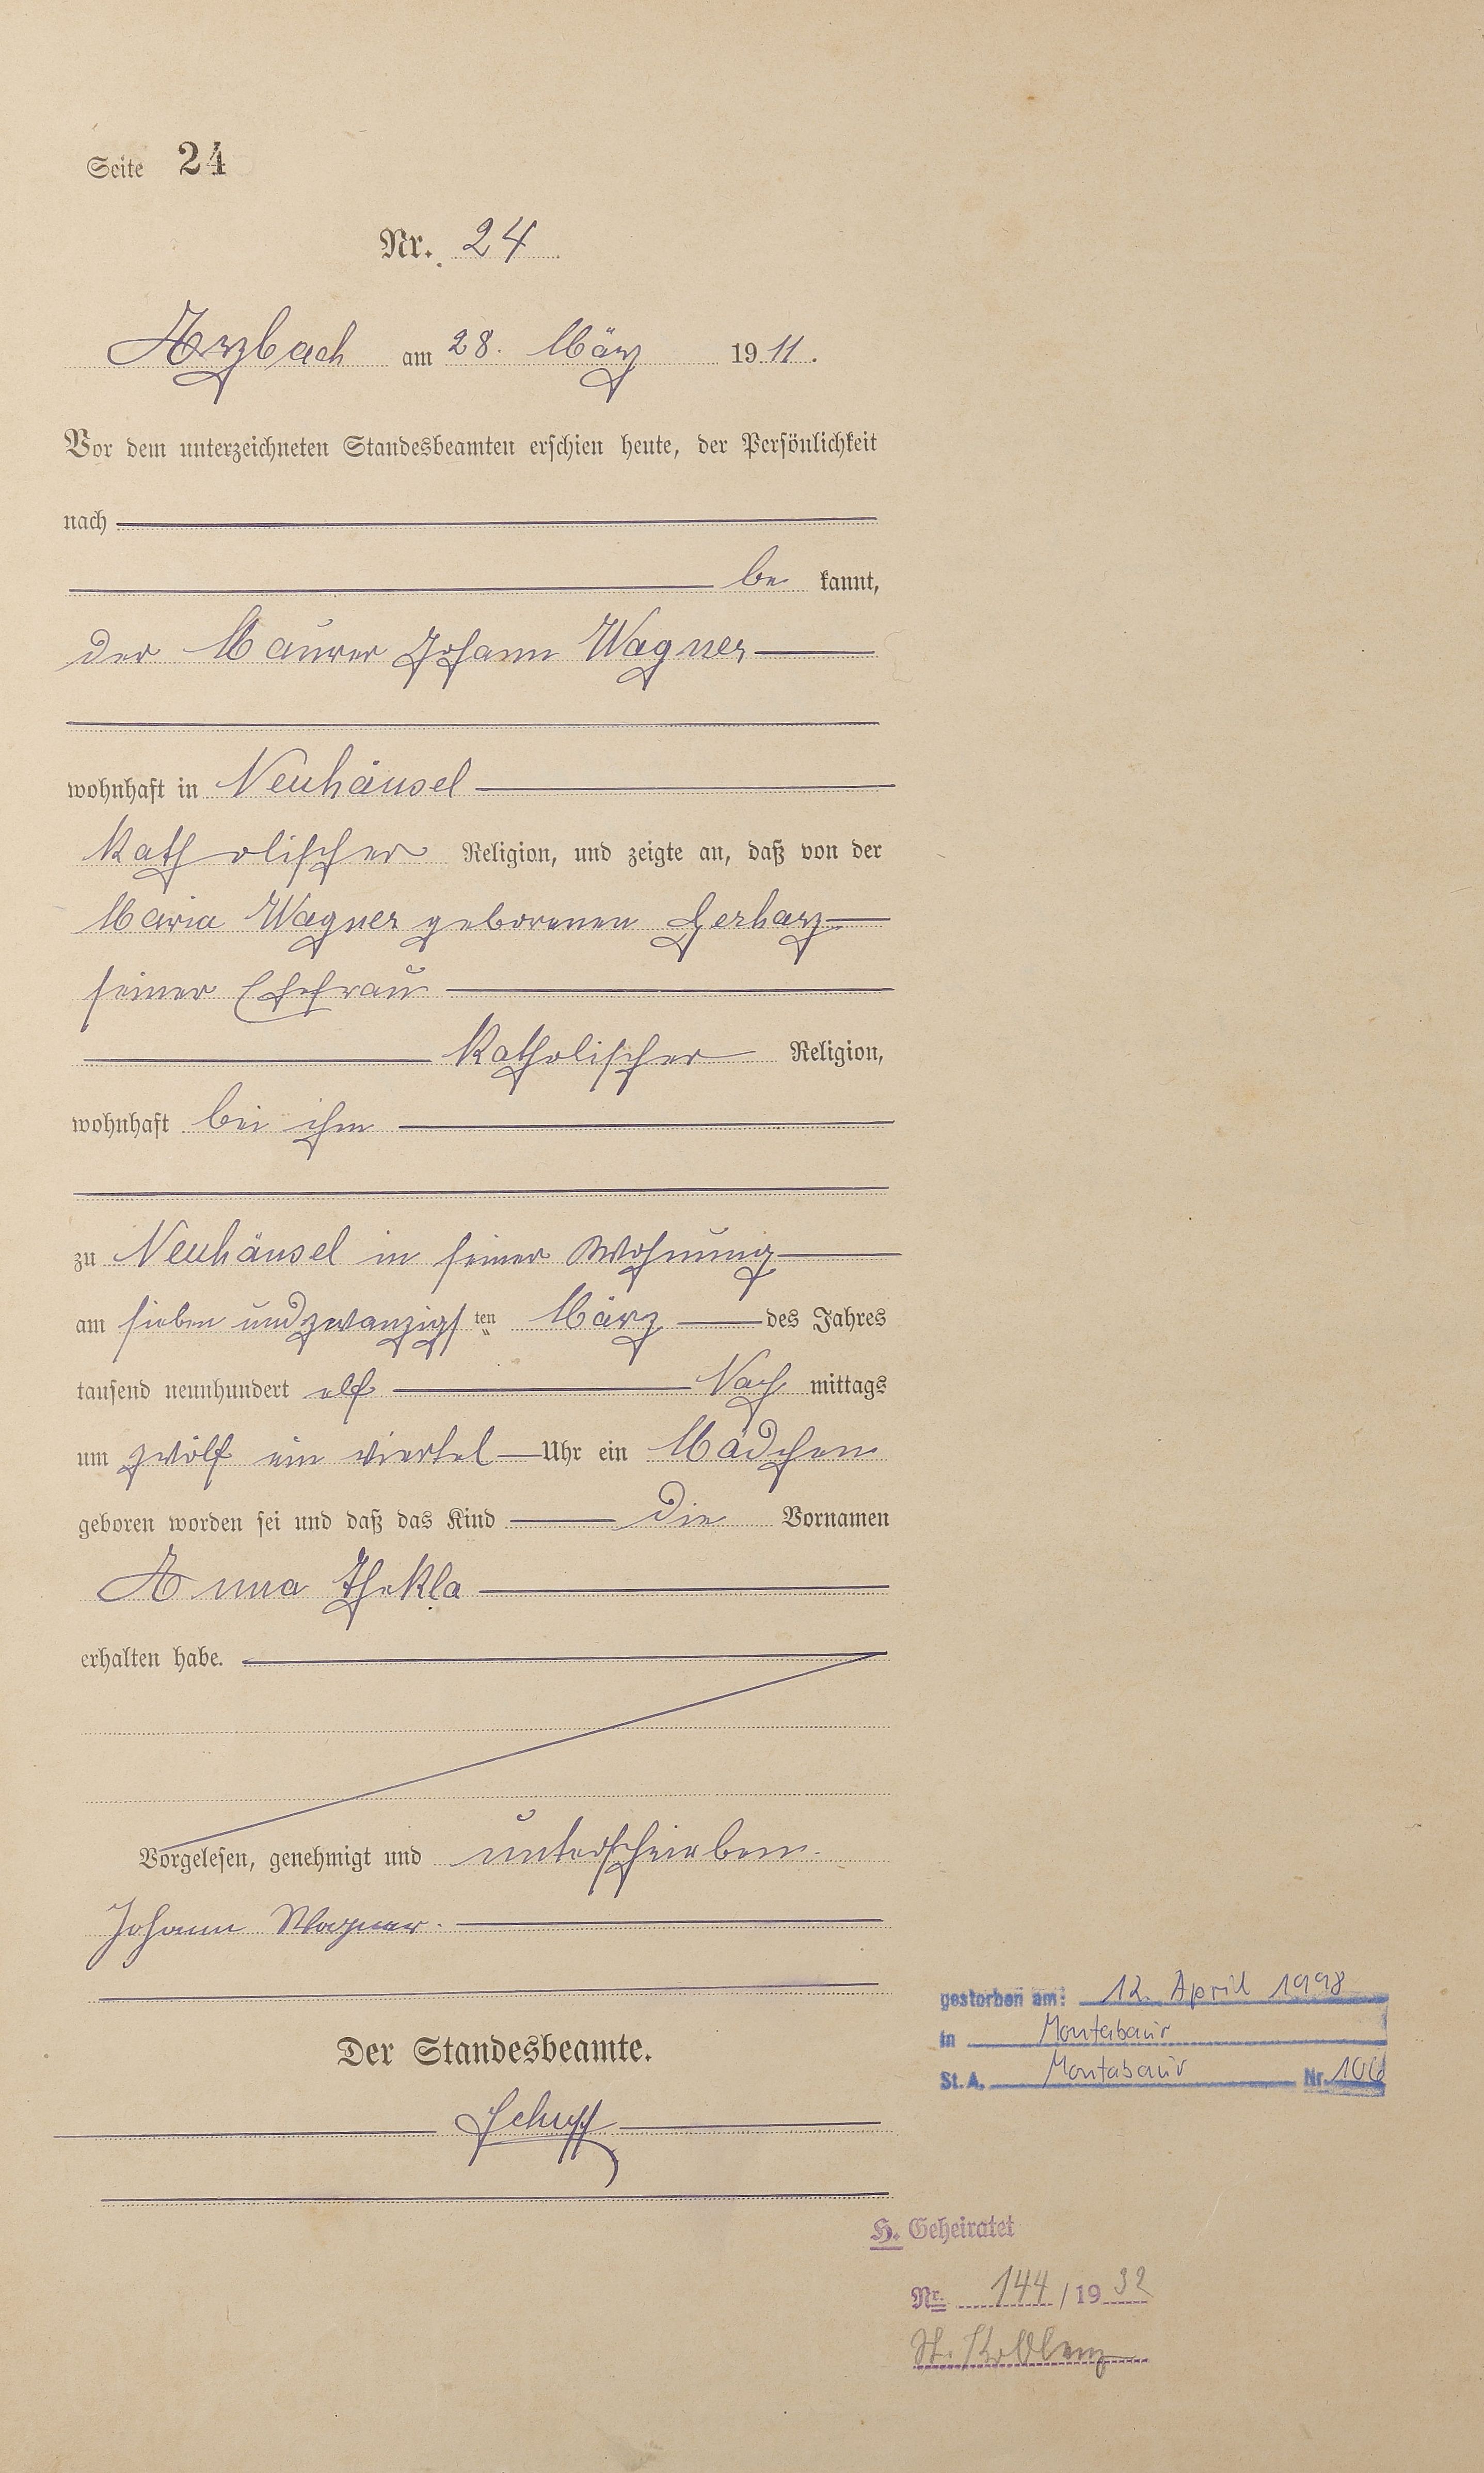 Seite 24
Nr. 24
Arzbach am 28. März 1911.
Vor dem unterzeichneten Standesbeamten erschien heute, der Persönlichkeit
nach
be kannt,
der Maurer Johann Wagner
wohnhaft in Neuhäusel
katholischer Religion, und zeigte an, daß von der
Maria Wagner geborenen Gerharz
seiner Ehefrau
katholischer Religion,
wohnhaft bei ihm
zu Neuhäusel in seiner Wohnung
am sieben undzwanzigsten März des Jahres
tausend neunhundert elf Nach mittags
um zwölf ein viertel Uhr ein Mädchen
geboren worden sei und daß das Kind die Vornamen
Anna Thekla
erhalten habe.
Vorgelesen, genehmigt und unterschrieben.
Johann Wagner.
Der Standesbeamte.
gestorben am: 12. April 1998
in Montabaur
St. A. Montabaur Nr.
H. Geheiratet
Nr. 144/1932
St. Koblenz